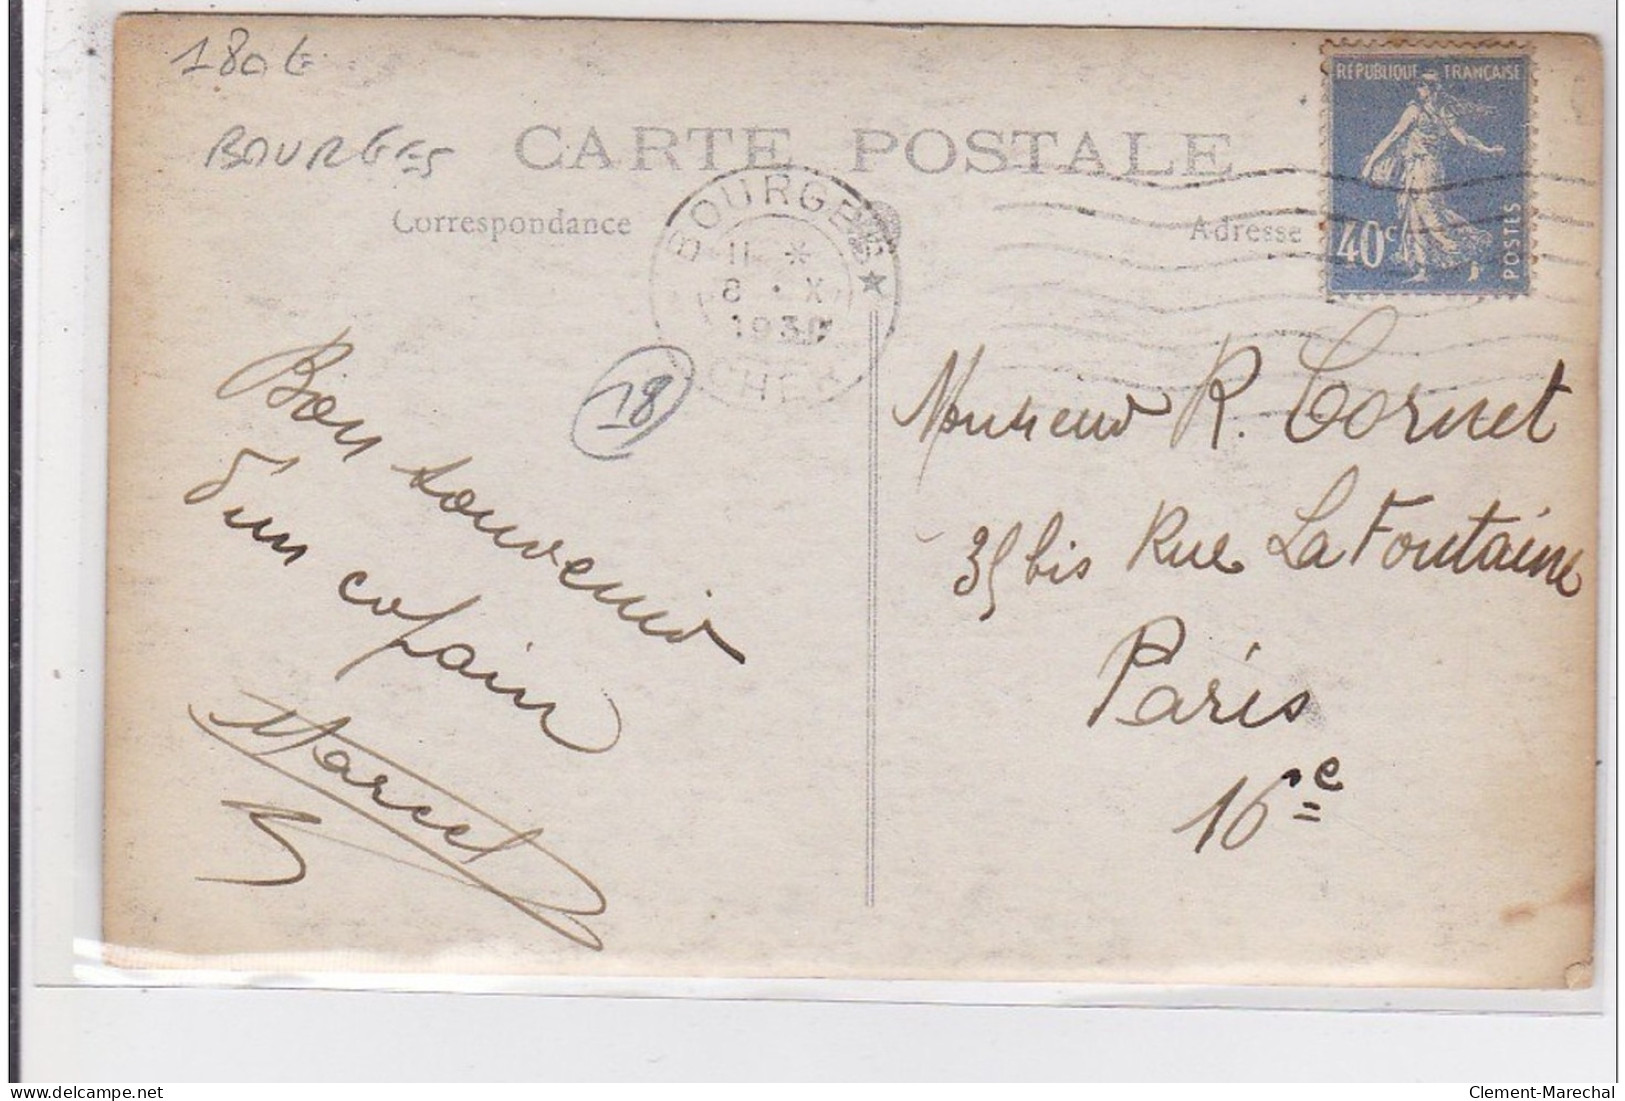 180€
BOURGES
CARTE POSTALE
Correspondance
Adresse
RÉPUBLIQUE FRANÇAISE
40c
POSTES
BOURGES
11 *
8 . X
1930
CHER
18
Bon souvenir
d'un copain
Marcel
Monsieur R. Cornet
35 bis Rue La Fontaine
Paris
16e
delcampe.net
Clement-Marechal